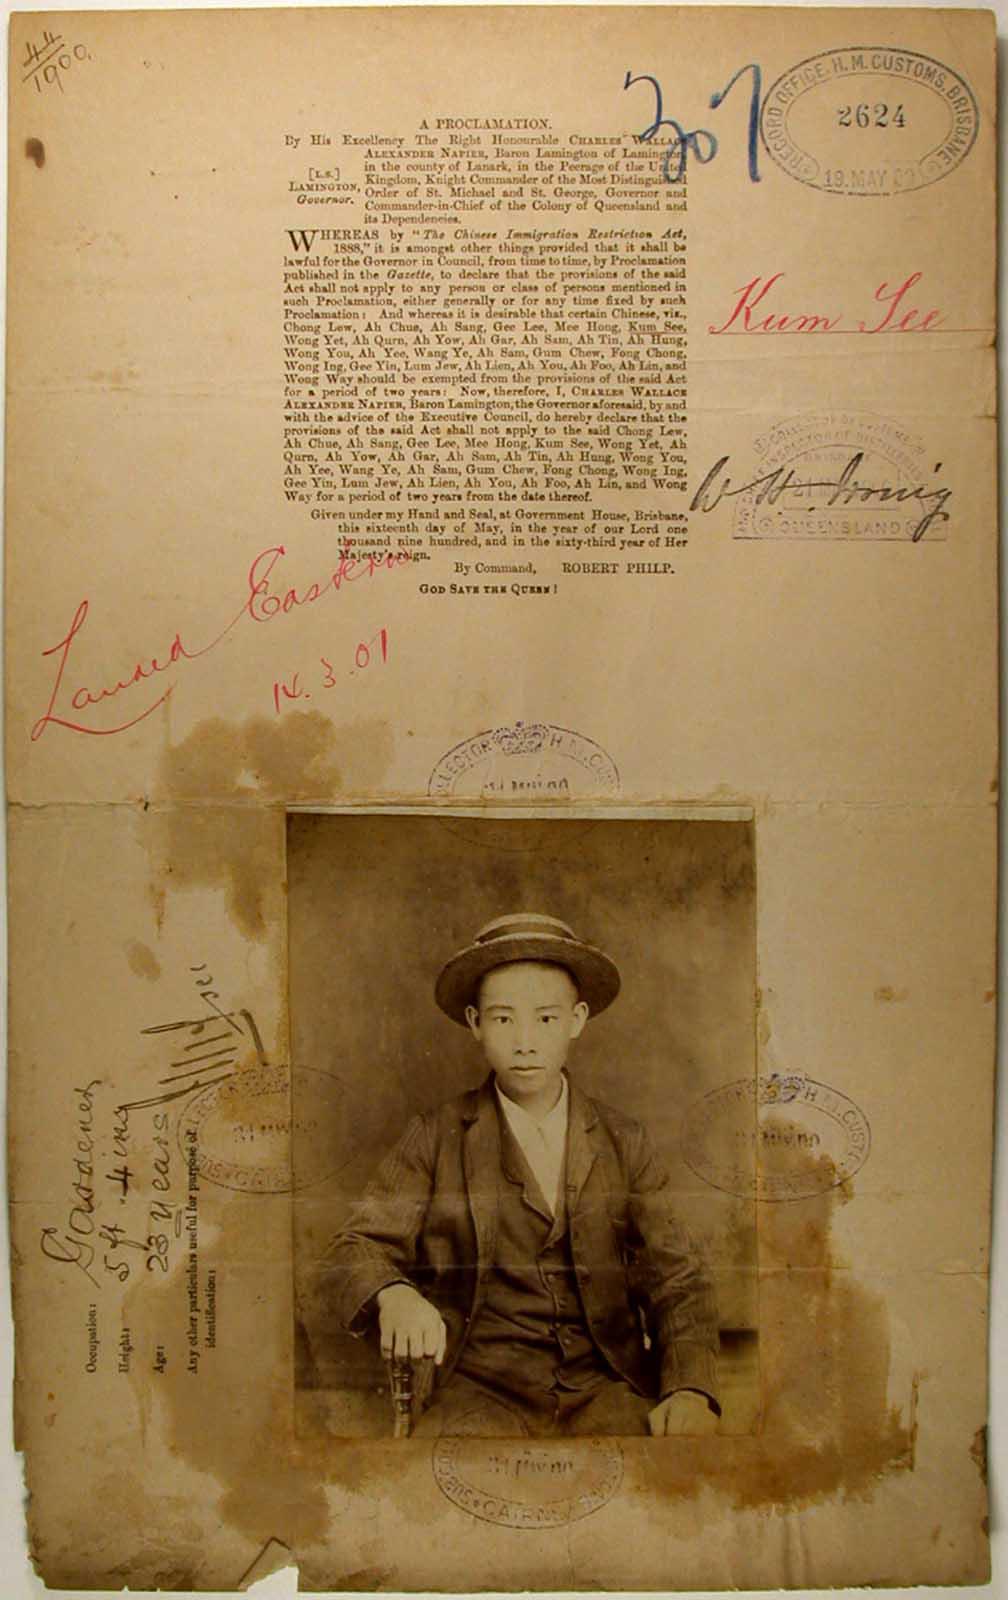 44
1900.
207
RECORD OFFICE, H. M. CUSTOMS, BRISBANE
2624
19. MAY
A PROCLAMATION.
By His Excellency The Right Honourable CHARLES WALLACE
ALEXANDER NAPIER, Baron Lamington of Lamington,
in the county of Lanark, in the Peerage of the United
[L.S.]
LAMINGTON,
Governor.
Kingdom, Knight Commander of the Most Distinguished
Order of St. Michael and St. George, Governor and
Commander-in-Chief of the Colony of Queensland and
its Dependencies.
WHEREAS by "The Chinese Immigration Restriction Act,
1888," it is amongst other things provided that it shall be
lawful for the Governor in Council, from time to time, by Proclamation
published in the Gazette, to declare that the provisions of the said
Act shall not apply to any person or class of persons mentioned in
such Proclamation, either generally or for any time fixed by such
Proclamation: And whereas it is desirable that certain Chinese, viz.,
Chong Lew, Ah Chue, Ah Sang, Gee Lee, Mee Hong, Kum See,
Wong Yet, Ah Qurn, Ah Yow, Ah Gar, Ah Sam, Ah Tin, Ah Hung,
Wong You, Ah Yee, Wang Ye, Ah Sam, Gum Chew, Fong Chong,
Wong Ing, Gee Yin, Lum Jew, Ah Lien, Ah You, Ah Foo, Ah Lin, and
Wong Way should be exempted from the provisions of the said Act
for a period of two years: Now, therefore, I, CHARLES WALLACE
ALEXANDER NAPIER, Baron Lamington, the Governor aforesaid, by and
with the advice of the Executive Council, do hereby declare that the
provisions of the said Act shall not apply to the said Chong Lew,
Ah Chue, Ah Sang, Gee Lee, Mee Hong, Kum See, Wong Yet, Ah
Qurn, Ah Yow, Ah Gar, Ah Sam, Ah Tin, Ah Hung, Wong You,
Ah Yee, Wang Ye, Ah Sam, Gum Chew, Fong Chong, Wong Ing,
Gee Yin, Lum Jew, Ah Lien, Ah You, Ah Foo, Ah Lin, and Wong
Way for a period of two years from the date thereof.
Given under my Hand and Seal, at Government House, Brisbane,
this sixteenth day of May, in the year of our Lord one
thousand nine hundred, and in the sixty-third year of Her
Majesty's reign.
By Command, ROBERT PHILP.
GOD SAVE THE QUEEN!
Kum See
W H Irving
QUEENSLAND
Landed Eastern
14.3.01
COLLECTOR H. M. CUSTOMS
H. M. CUSTO
CAIRNS
SUB COLLECTOR
CAIRNS
Occupation: Gardener
Height: 5 ft. 4 ins
Age: 23 years
Any other particulars useful for purpose of
identification: